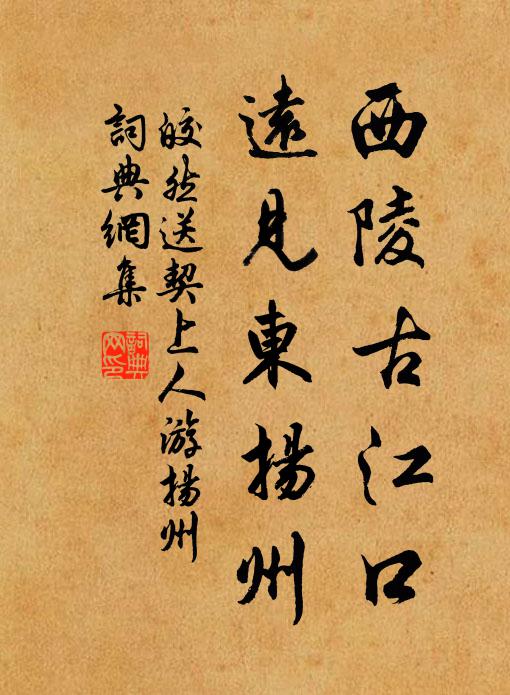 西陵古江口
遠見東揚州
皎然送契上人游揚州
詞典網集
詞典網印